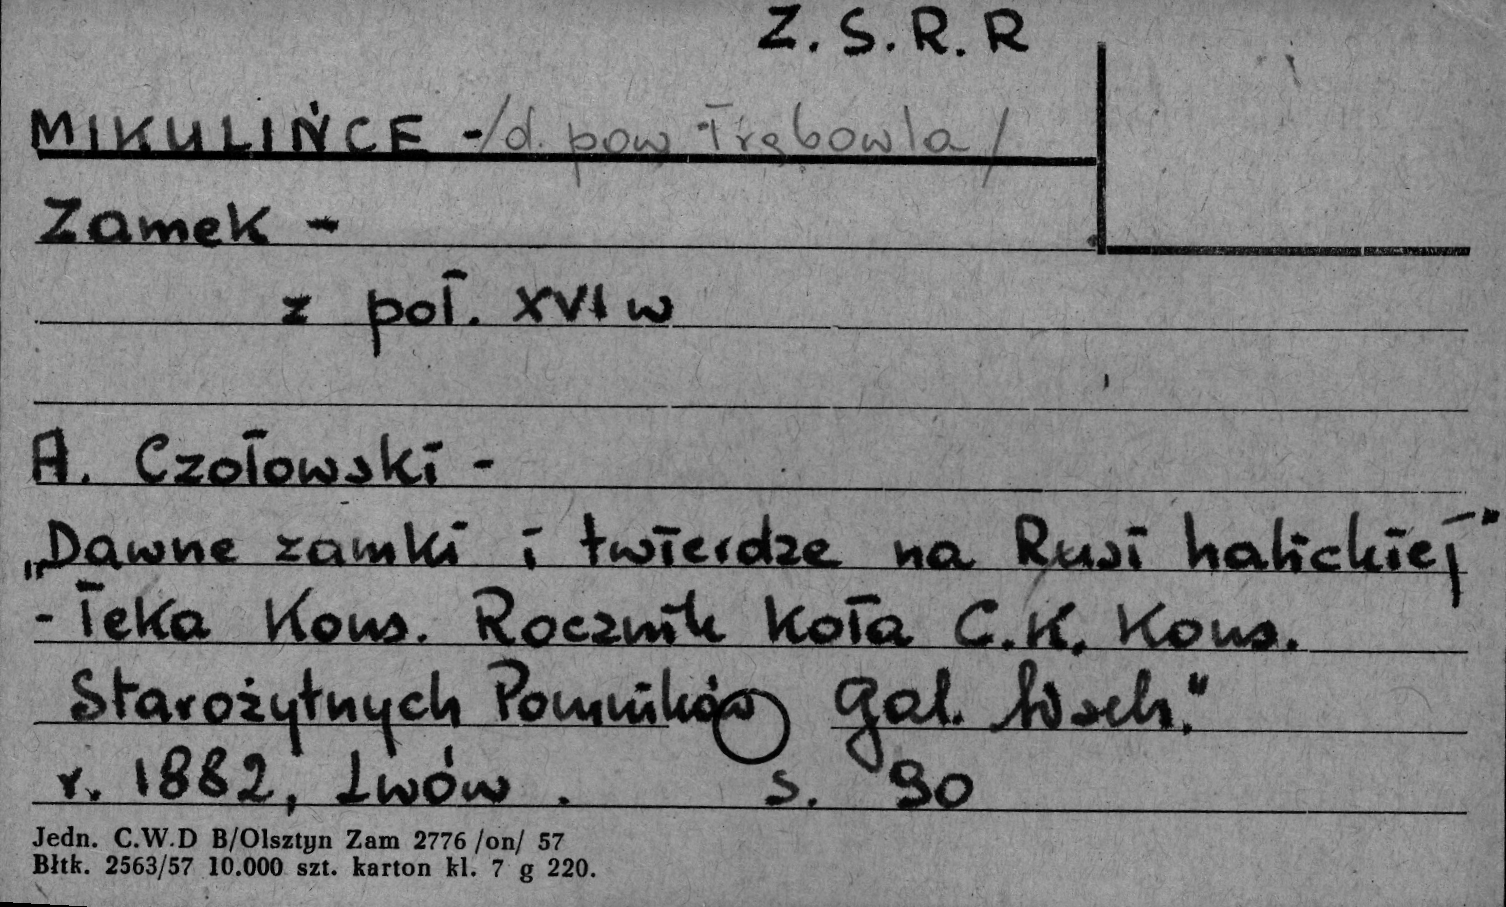 Z.S.R.R
MIKULIŃCE - /d. pow Trębowla/
Zamek -
z poł. XVI w
A. Czołowski -
„Dawne zamki i twierdze na Rusi halickiej"
- Teka Kons. Rocznik Koła C.K. Kons.
Starożytnych Pomników Gal. Wsch."
r. 1882, Lwów. s. 90
Jedn. C.W.D B/Olsztyn Zam 2776 /on/ 57
Błtk. 2563/57 10.000 szt. karton kl. 7 g 220.